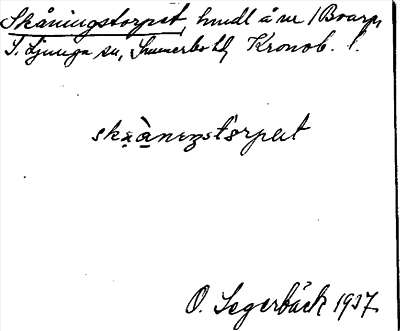 Skåningstorpet, hmdl å nr 1 Boarp,
S. Ljunga sn, Sunnerbo hd, Kronob. l.
skạànịŋstørpət
O. Segerbäck 1937